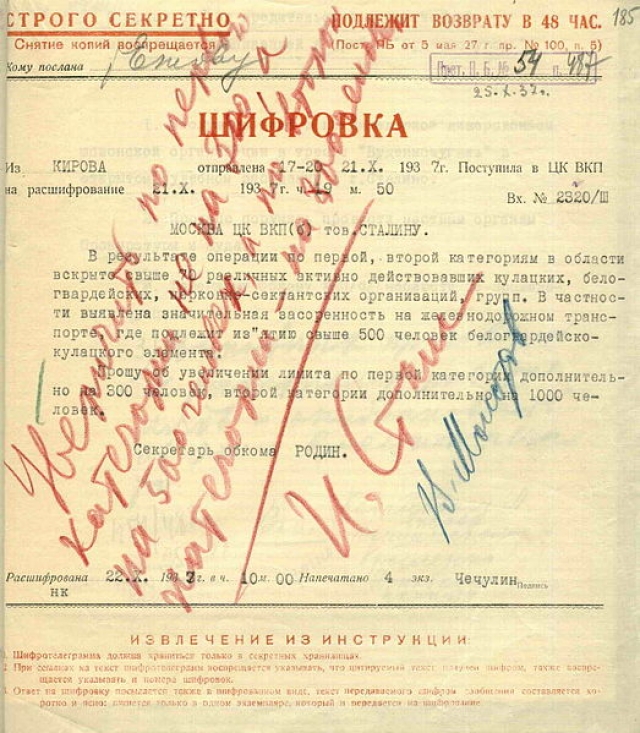 СТРОГО СЕКРЕТНО
ПОДЛЕЖИТ ВОЗВРАТУ В 48 ЧАС.
185
Снятие копий воспрещается
(Пост. ПБ от 5 мая 27 г. пр. № 100, п. 5)
Кому послана
Ежову
Прот. П. Б. № 54 п. 487
25.X.37г.
ШИФРОВКА
Из КИРОВА отправлена 17-20 21.X. 1937г. Поступила в ЦК ВКП
на расшифрование 21.X. 1937г. ч. 19 м. 50
Вх. № 2320/Ш
МОСКВА ЦК ВКП(б) тов. СТАЛИНУ.
В результате операции по первой, второй категориям в области
вскрыто свыше различных активно действовавших кулацких, бело-
гвардейских, церковно-сектантских организаций, групп. В частнос
ти выявлена значительная засоренность на железнодорожном транс-
порте, где подлежит из"ятию свыше 500 человек белогвардейско-
кулацкого элемента.
Прошу об увеличении лимита по первой категории дополнитель-
но на 300 человек, второй категории дополнительно на 1000 че-
ловек.
Секретарь обкома РОДИН.
Увеличить по первой
категории не на 300 а
на 500 человек, а по второй
категории – на 800 человек
И. Сталин
В. Молотов
Расшифрована 22.X. 1937г. в ч. 10 м. 00 Напечатано 4 экз. Чечулин
Подпись
нк
ИЗВЛЕЧЕНИЕ ИЗ ИНСТРУКЦИИ:
1. Шифротелеграмма должна храниться только в секретных хранилищах.
2. При ссылках на текст шифротелеграмм воспрещается указывать, что цитируемый текст получен шифром, также воспре-
щается указывать и номера шифровок.
3. Ответ на шифровку посылается также в шифрованном виде, текст передаваемого шифром сообщения составляется ко-
ротко и ясно: пишется только в одном экземпляре, который и передается на шифрование.